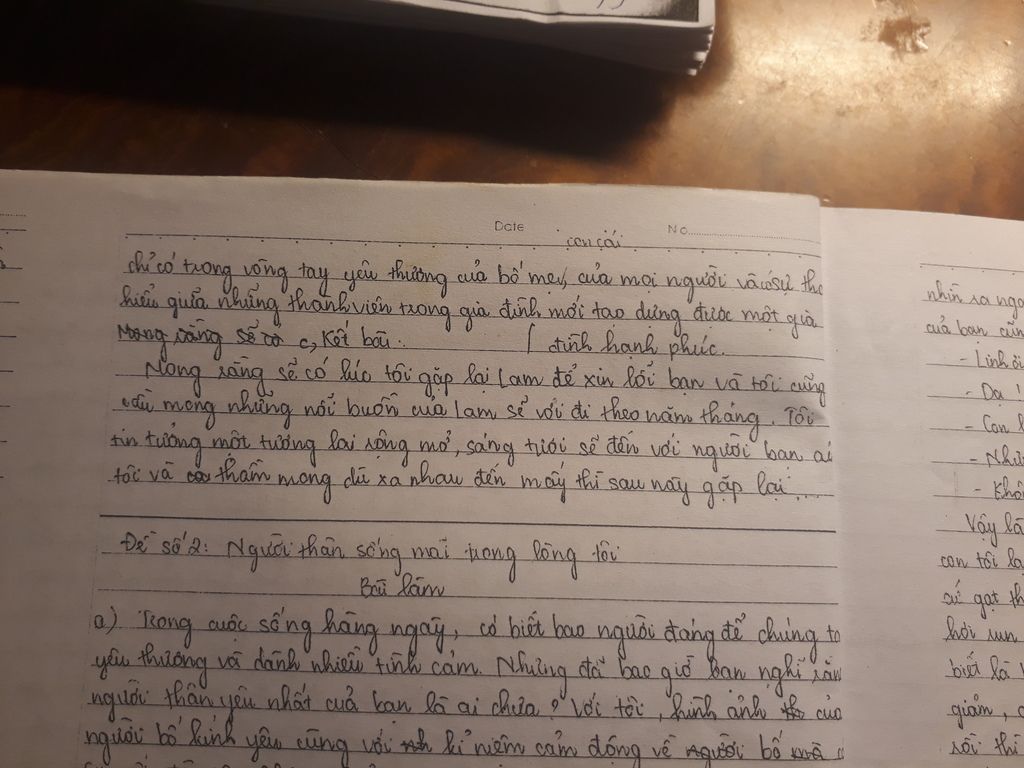 Date No
con cái
chỉ có trong vòng tay yêu thương của bố mẹ, của mọi người và có sự
hiểu giữa những thành viên trong gia đình mới tạo dựng được một gia
Mong rằng sẽ có c, Kết bài. [ đình hạnh phúc.
Mong rằng sẽ có lúc tôi gặp lại Lam để xin lỗi bạn và tôi cũng
cầu mong những nỗi buồn của Lam sẽ vơi đi theo năm tháng. Tôi
tin tưởng một tương lai rộng mở, sáng tươi sẽ đến với người bạn
tôi và thầm mong dù xa nhau đến mấy thì sau này gặp lại...
Đề số 2: Người thân sống mãi trong lòng tôi
Bài làm
a) Trong cuộc sống hàng ngày, có biết bao người đáng để chúng ta
yêu thương và dành nhiều tình cảm. Nhưng đã bao giờ bạn nghĩ rằng
người thân yêu nhất của bạn là ai chưa? Với tôi, hình ảnh của
người bố kính yêu cùng với kỉ niệm cảm động về người bố
nhìn ra
của bạn
- Linh
- Dạ!
- Con
-
-
Vậy là
con tôi
gạt
hơi run
biết là
giảm,
rồi thì